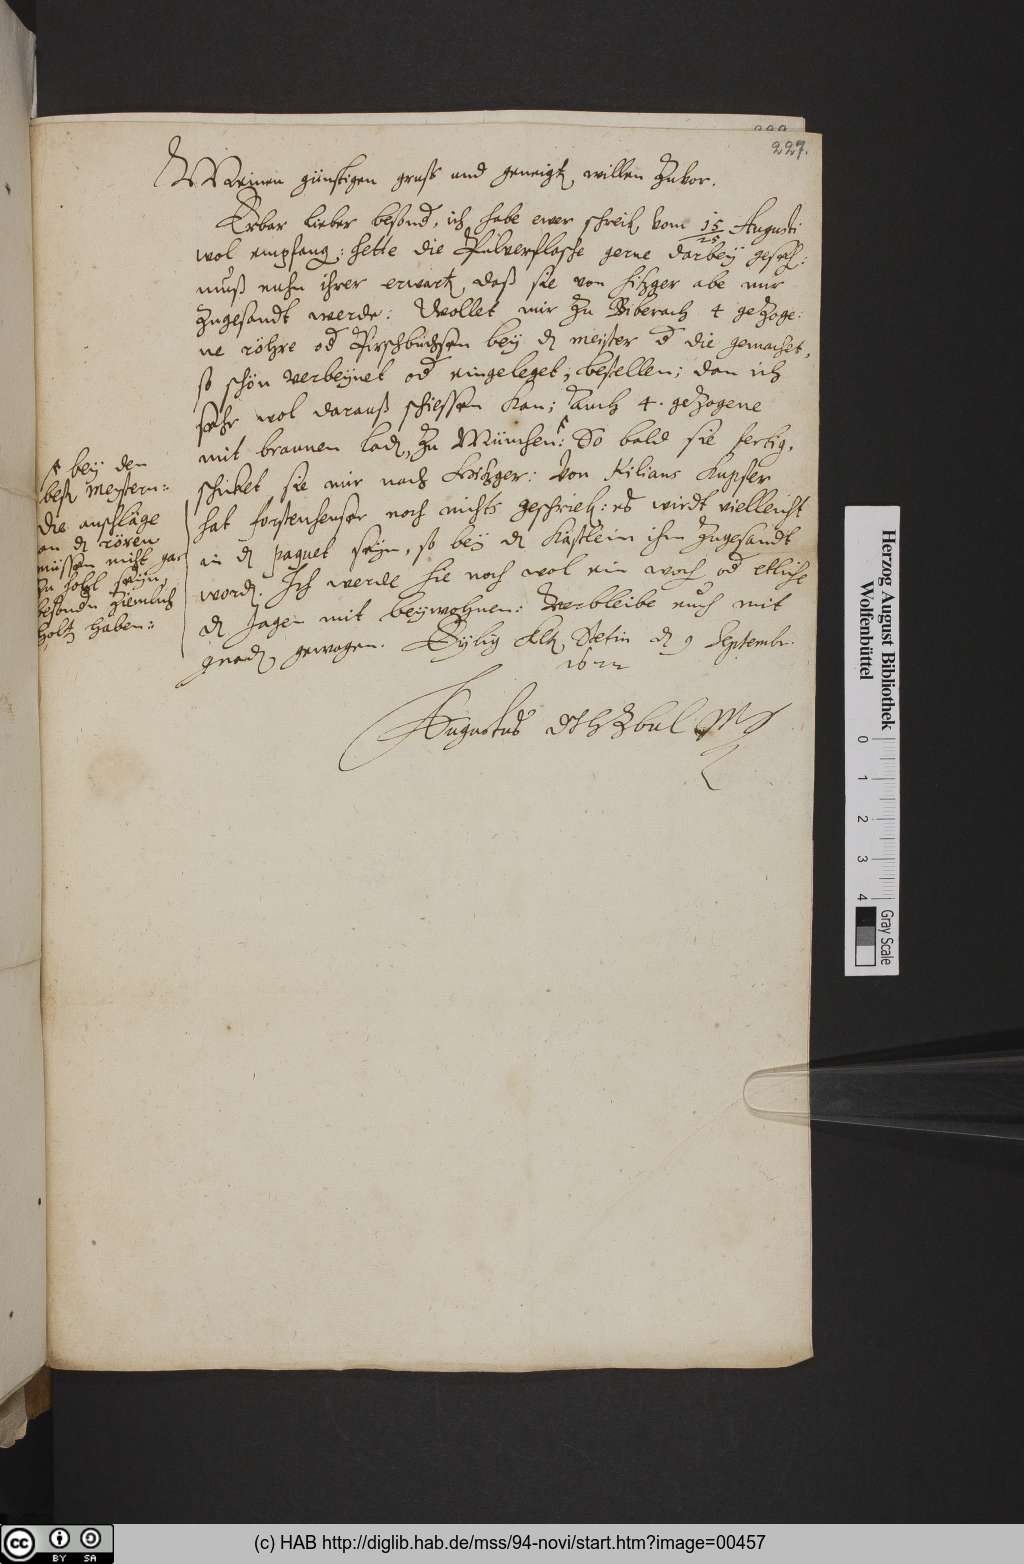 227.
Meinen günstigen gruß und geneigt willen Zuvor.
Erbar lieber besond, ich habe ewer schreib vom 15/25 Augusti
wol empfang; hette die Pulverflasche gerne darbey geseh;
muß nuhn ihrer erwart, daß sie von hitzger abe mir
Zugesandt werde: Wollet mir Zu Biberach 4 geZoge:
ne röhre od Pirschbüchsen bey d meister d die gemachet,
so schön verbeynet od eingeleget, bestellen; dan ich
sehr wol darauß schiessen kan; Auch 4. geZogene
mit braunen lad, Zu München: So bald sie fertig,
schicket sie mir nach Hitzger: Von Kilians Kupfer
hat forstenheuser noch nichts geschrieb: es wirdt vielleicht
in d paquet seyn, so bey d Kästlein ihm Zugesandt
word. Ich werde hie noch wol ein woch od etliche
d Jagen mit beywohnen: Verbleibe euch mit
gnad gewogen. Eylig Alt Stetin d 9 Septembr.
1622
Augustus DJhZbul Mp
bey den
best meistern:
die anschläge
an d rören
müssen nicht gar
Zu hohl seyn,
besondn Ziemlich
holtz haben:
Herzog August Bibliothek
Wolfenbüttel
0 1 2 3 4
Gray Scale
cc BY SA
(c) HAB http://diglib.hab.de/mss/94-novi/start.htm?image=00457